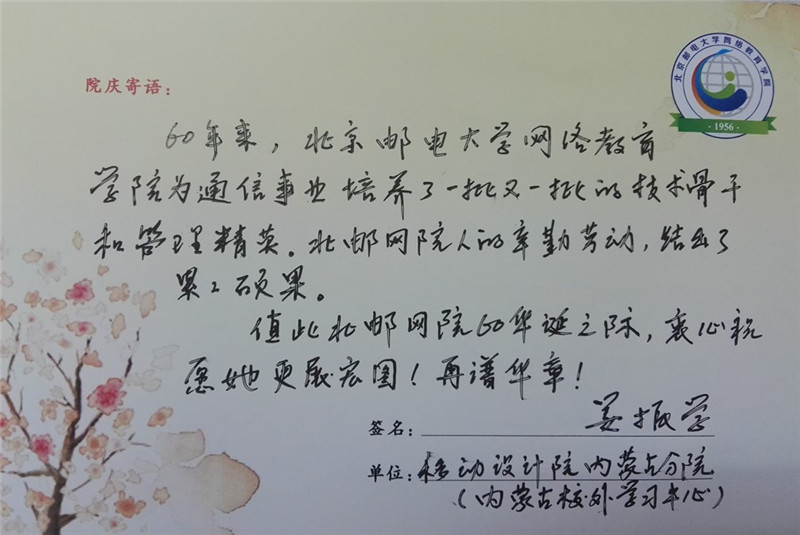 北京邮电大学网络教育学院
·1956·
院庆寄语：
60年来，北京邮电大学网络教育
学院为通信事业培养了一批又一批的技术骨干
和管理精英。北邮网院人的辛勤劳动，结出了
累累硕果。
值此北邮网院60华诞之际，衷心祝
愿她更展宏图！再谱华章！
签名：姜振学
单位：移动设计院内蒙古分院
（内蒙古校外学习中心）